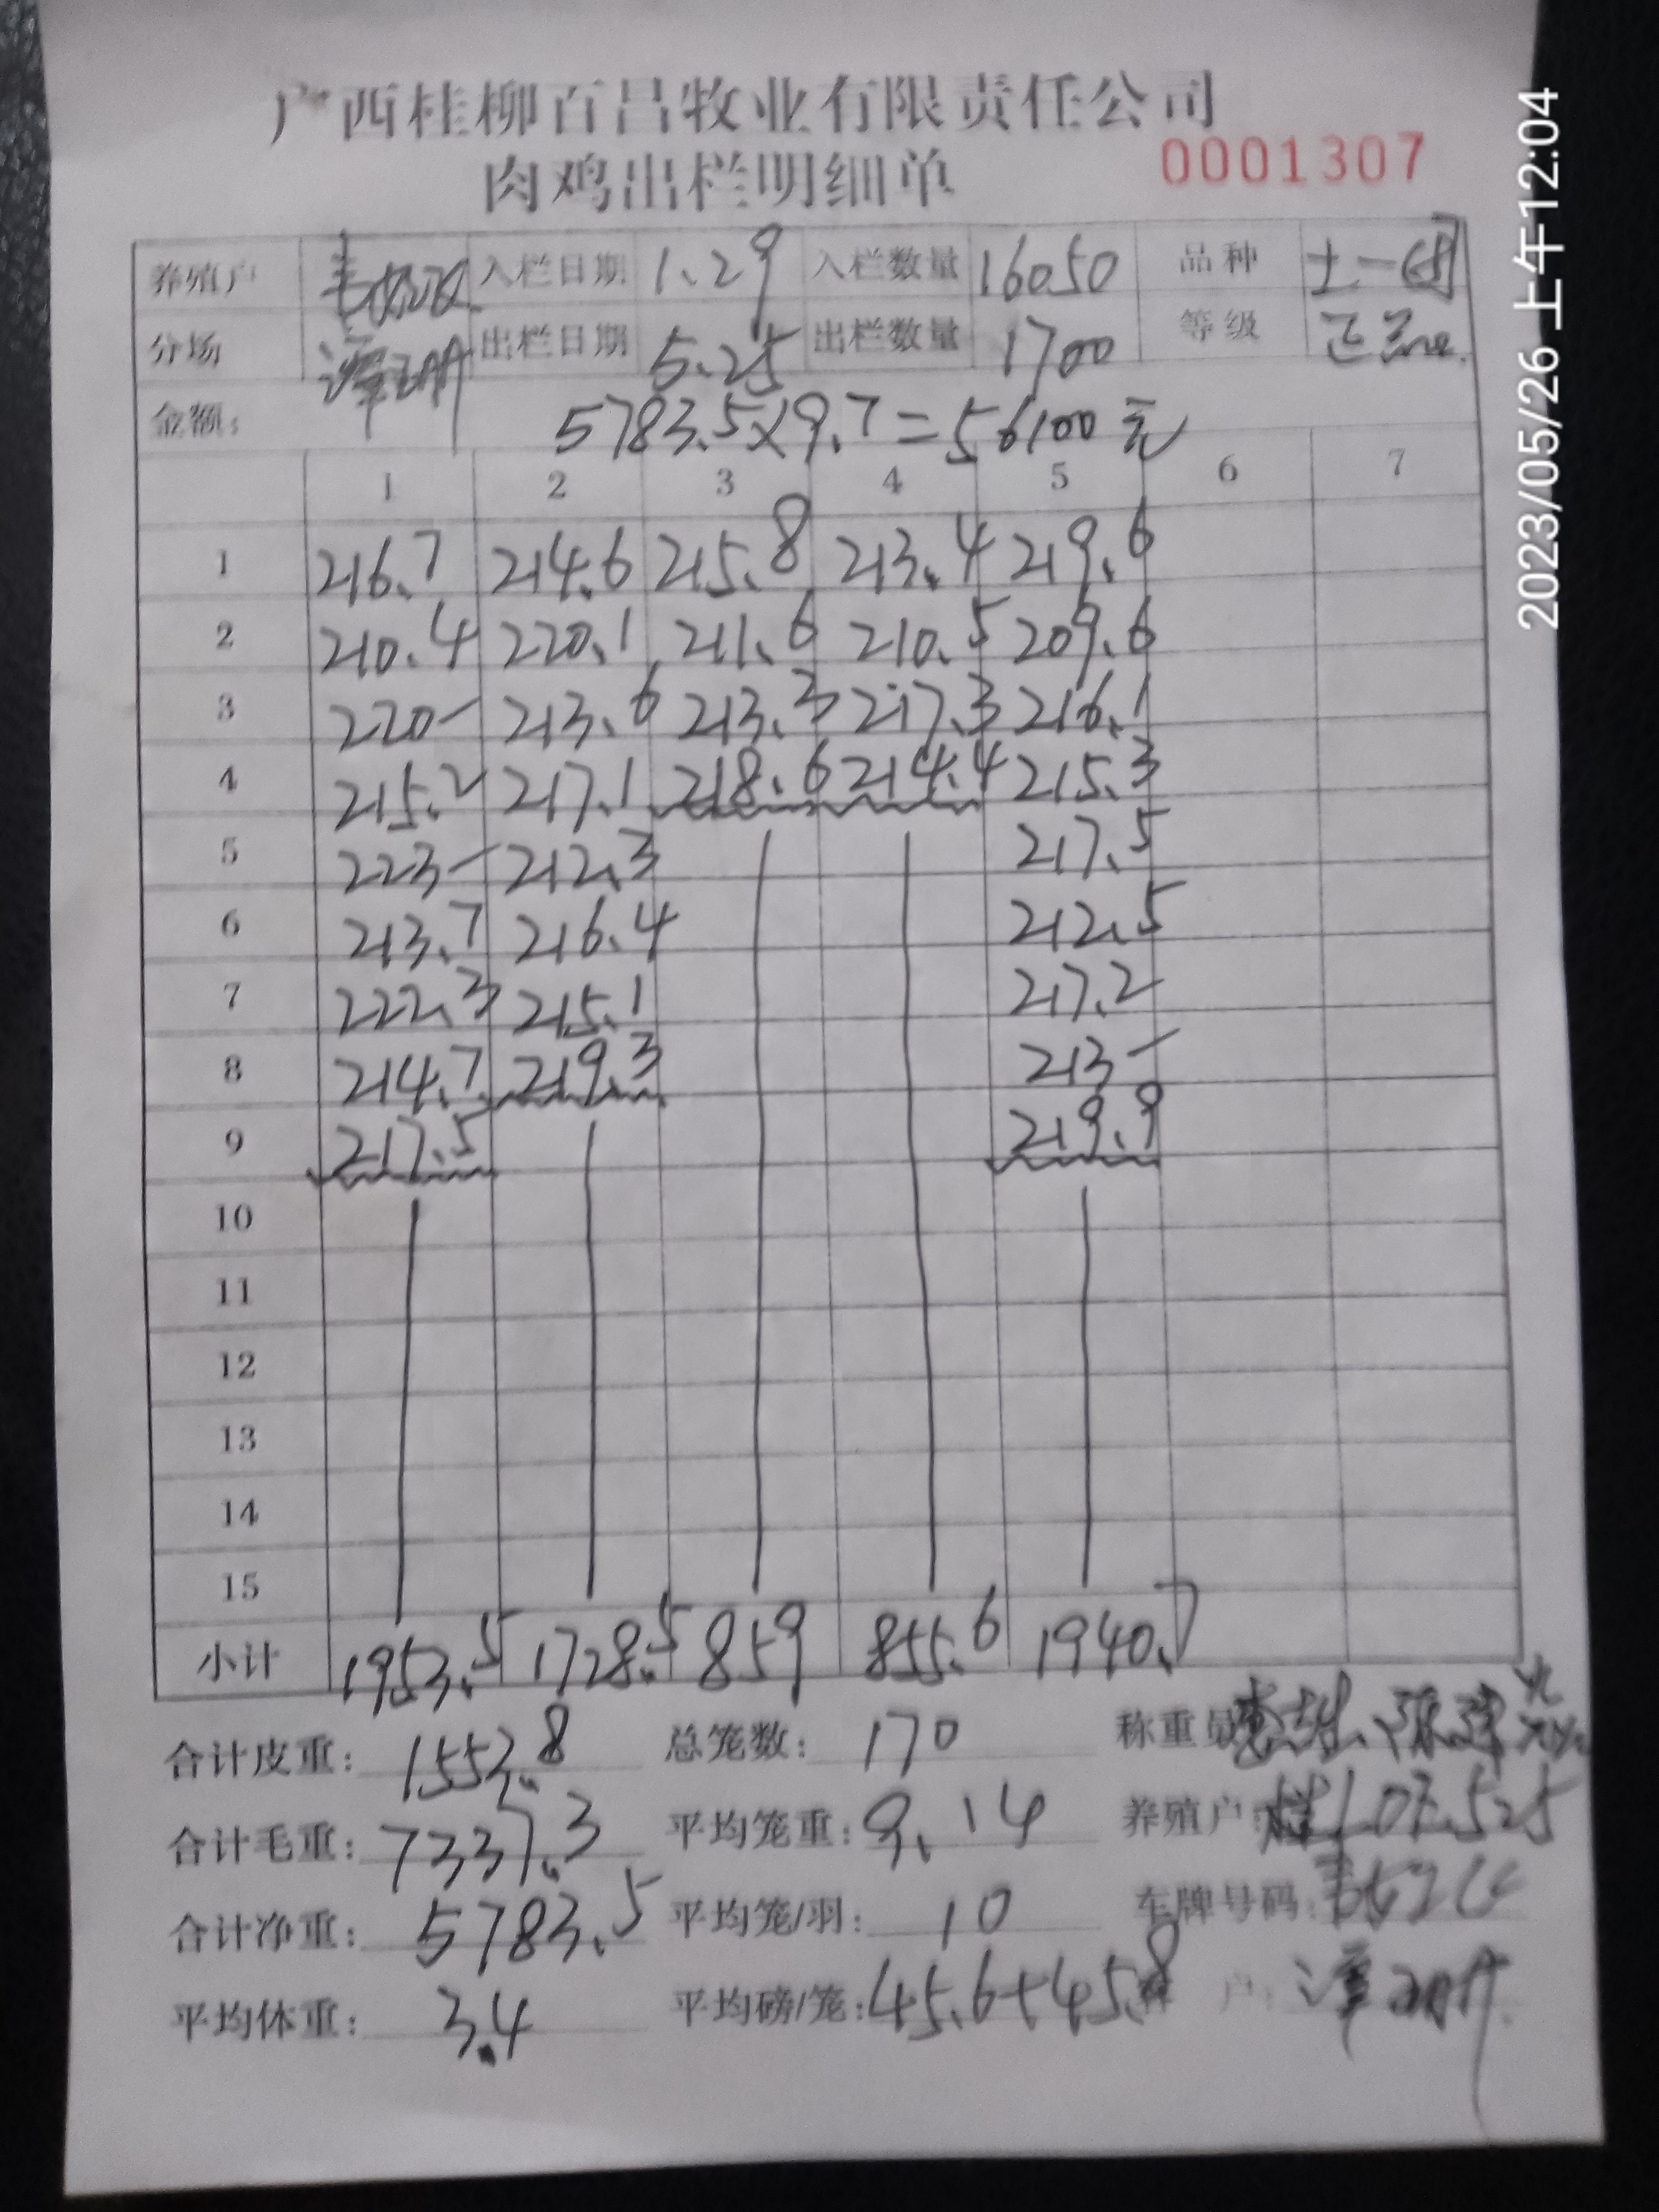 广西桂柳百昌牧业有限责任公司
肉鸡出栏明细单 0001307
养殖户 入栏日期 1.29 入栏数量 16050 品种 土一
分场 出栏日期 5.25 出栏数量 1700 等级 正
金额: 5783.5×9.7=56100元
1 2 3 4 5 6 7
1 216.7 214.6 215.8 213.4 219.6
2 210.4 220.1 211.6 210.5 209.6
3 220- 213.6 213.3 217.3 216.1
4 215.2 217.1 218.6 214.4 215.3
5 223- 212.3 217.5
6 213.7 216.4 212.5
7 222.3 215.1 217.2
8 214.7 219.3 213-
9 217.5 219.9
10
11
12
13
14
15
小计 1953.5 1728.5 859 855.6 1940.7
合计皮重: 1553.8 总笼数: 170 称重员
合计毛重: 7337.3 平均笼重: 9.14 养殖户:
合计净重: 5783.5 平均笼/羽: 10 车牌号码:
平均体重: 3.4 平均磅/笼: 45.6+45.8 户:
2023/05/26 上午12:04